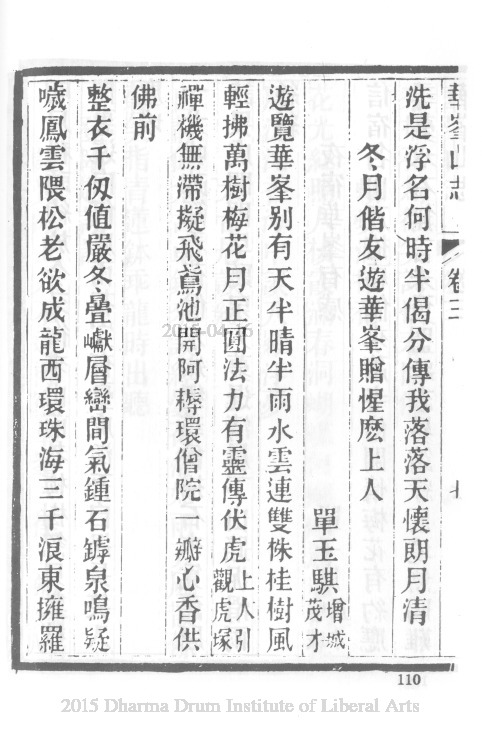 華峯山志
卷三
七
洗是浮名何時半偈分傳我落落天懷朗月清
冬月偕友遊華峯贈惺庅上人
單玉騏增城茂才
遊覽華峯別有天半晴半雨水雲連雙株桂樹風
輕拂萬樹梅花月正圓法力有靈傳伏虎上人引觀虎塚
禪機無滯擬飛鳶池開阿耨環僧院一瓣心香供
佛前
整衣千仭值嚴冬疊巘層巒間氣鍾石罅泉鳴疑
噦鳳雲隈松老欲成龍西環珠海三千浪東擁羅
110
2015-04-16
2015 Dharma Drum Institute of Liberal Arts